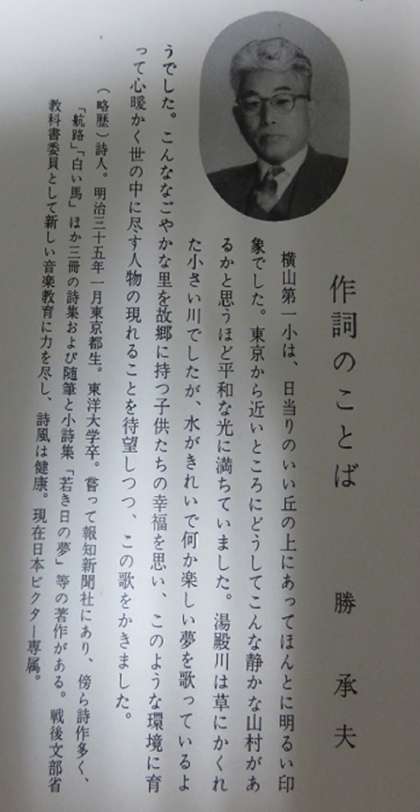 作詞のことば　　勝　承夫
横山第一小は、日当りのいい丘の上にあってほんとに明るい印
象でした。東京から近いところにどうしてこんな静かな山村があ
るかと思うほど平和な光に満ちていました。湯殿川は草にかくれ
た小さい川でしたが、水がきれいで何か楽しい夢を歌っているよ
うでした。こんななごやかな里を故郷に持つ子供たちの幸福を思い、このような環境に育
って心暖かく世の中に尽す人物の現れることを待望しつつ、この歌をかきました。
（略歴）詩人。明治三十五年一月東京都生。東洋大学卒。嘗って報知新聞社にあり、傍ら詩作多く、
「航路」「白い馬」ほか三冊の詩集および随筆と小詩集「若き日の夢」等の著作がある。戦後文部省
教科書委員として新しい音楽教育に力を尽し、詩風は健康。現在日本ビクター専属。